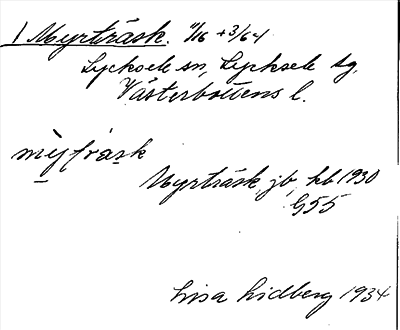 1 Myrträsk. 1/16 + 3/64
Lycksele sn, Lycksele tg.
Västerbottens l.
Myrträsk, jb, kb 1930
G55
Lisa Lidberg 1934